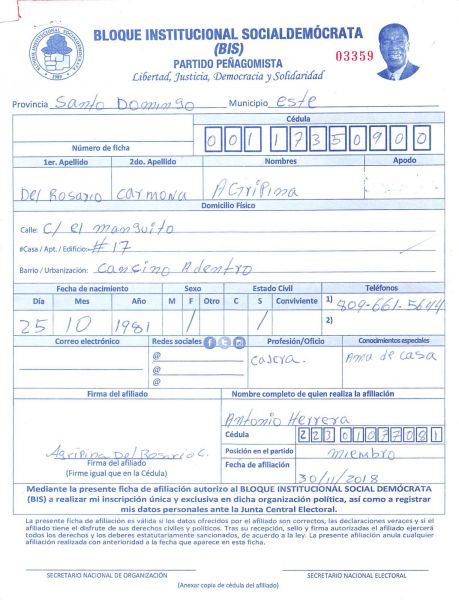 BLOQUE INSTITUCIONAL SOCIALDEMÓCRATA
(BIS)
PARTIDO PEÑAGOMISTA
Libertad, Justicia, Democracia y Solidaridad
03359
BLOQUE INSTITUCIONAL SOCIALDEMOCRATA
Provincia Santo Domingo Municipio este
Cédula
Número de ficha 00117350900
1er. Apellido 2do. Apellido Nombres Apodo
Del Rosario Carmona AGripina
Domicilio Físico
Calle: C/ el manguito
#Casa / Apt. / Edificio: #17
Barrio / Urbanización: Cancino Adentro
Fecha de nacimiento Sexo Estado Civil Teléfonos
Día Mes Año M F Otro C S Conviviente 1) 809-661-5644
25 10 1981 / / 2)
Correo electrónico Redes sociales Profesión/Oficio Conocimientos especiales
@ casera. Ama de casa
@
@
Firma del afiliado Nombre completo de quien realiza la afiliación
Antonio Herrera
Cédula 22301077081
Agripina Del Rosario C. Posición en el partido miembro
Firma del afiliado Fecha de afiliación
(Firme igual que en la Cédula) 30/11/2018
Mediante la presente ficha de afiliación autorizo al BLOQUE INSTITUCIONAL SOCIAL DEMÓCRATA
(BIS) a realizar mi inscripción única y exclusiva en dicha organización política, así como a registrar
mis datos personales ante la Junta Central Electoral.
La presente ficha de afiliación es válida si los datos ofrecidos por el afiliado son correctos, las declaraciones veraces y si el
afiliado tiene el disfrute de sus derechos civiles y políticos. Tras su recepción, sello y firma autorizadas el afiliado ejercerá
todos los derechos y los deberes estatutariamente sancionados, de acuerdo a la ley. La presente afiliación anula cualquier
afiliación realizada con anterioridad a la fecha que aparece en esta ficha.
SECRETARIO NACIONAL DE ORGANIZACIÓN SECRETARIO NACIONAL ELECTORAL
(Anexar copia de cédula del afiliado)